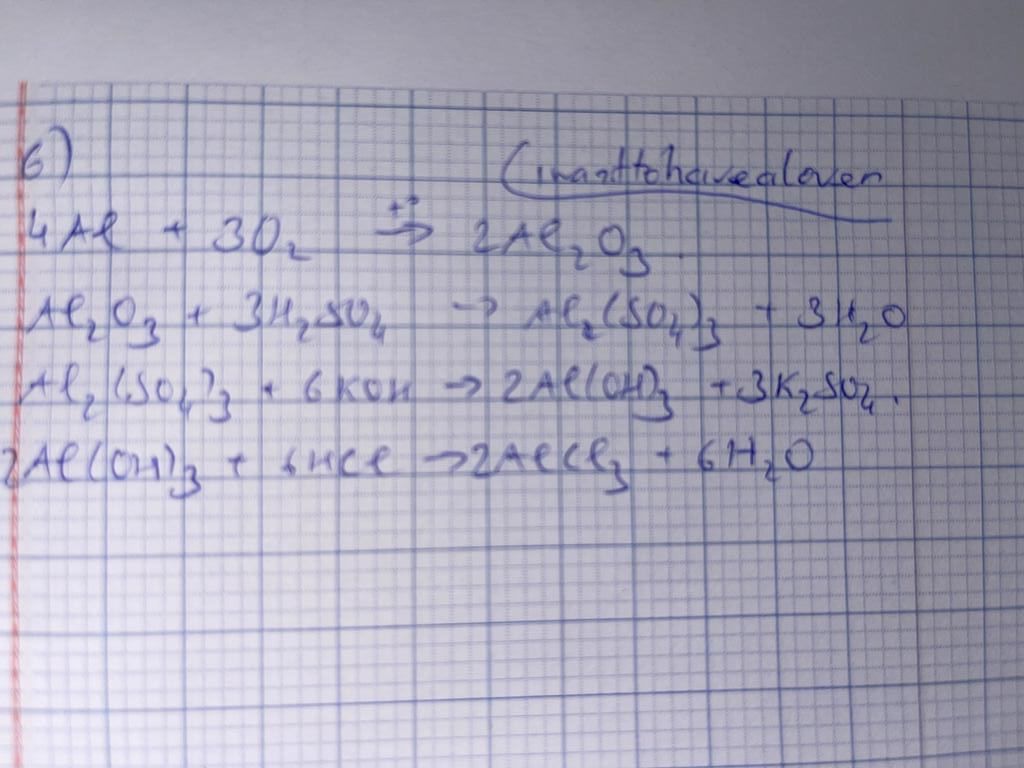 6)
(iwanttohavealover
4Al + 3O₂ →(t°) 2Al₂O₃.
Al₂O₃ + 3H₂SO₄ → Al₂(SO₄)₃ + 3H₂O
Al₂(SO₄)₃ + 6KOH → 2Al(OH)₃ + 3K₂SO₄.
2Al(OH)₃ + 6HCl → 2AlCl₃ + 6H₂O